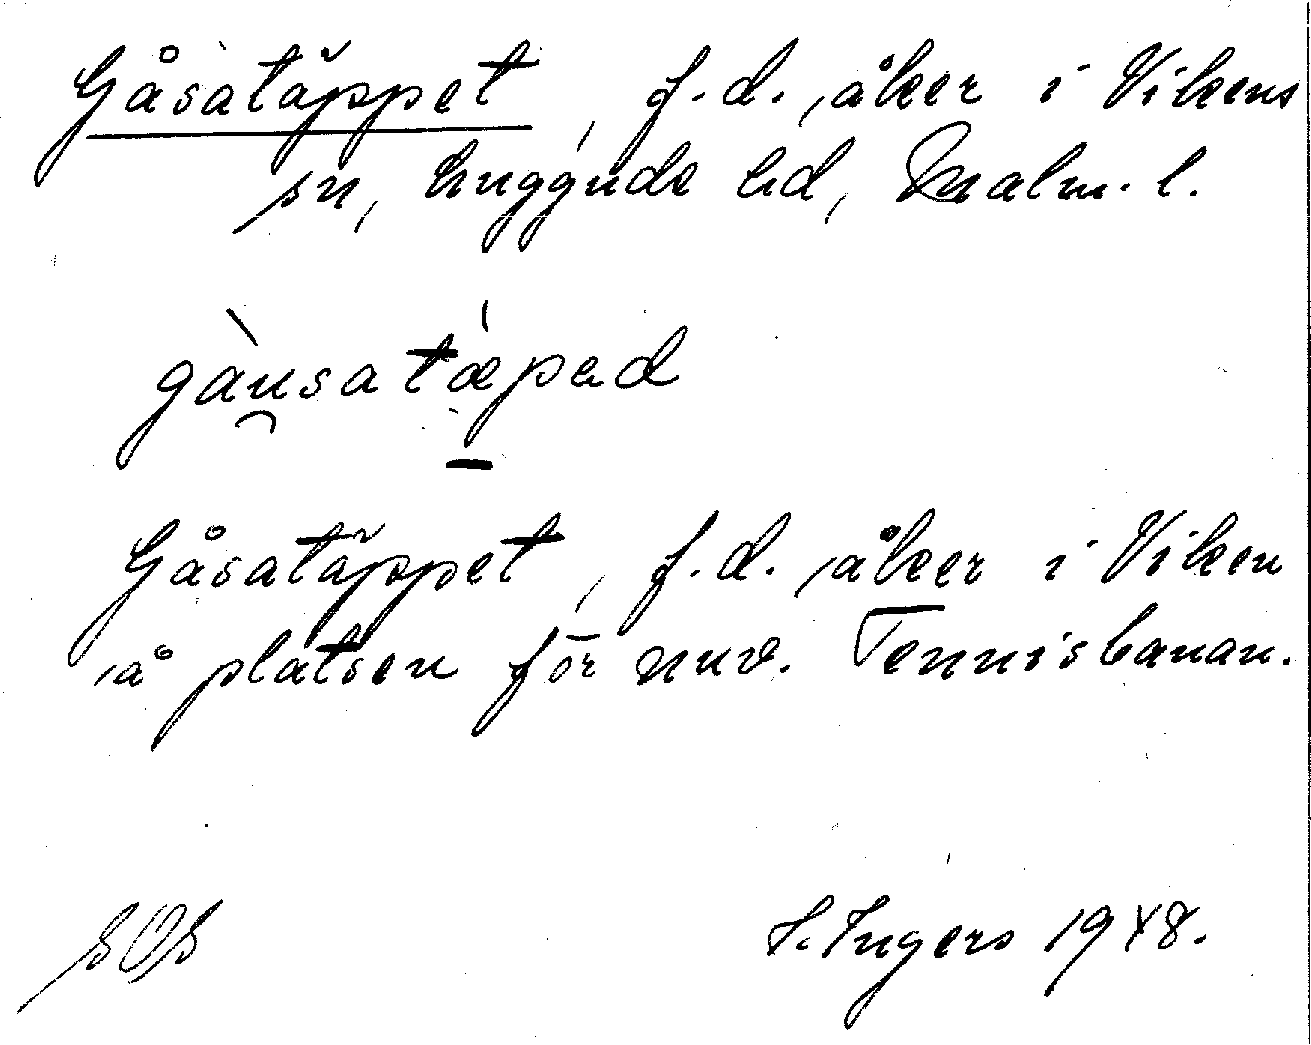 Gåsatäppet, f.d. åker i Vikens
sn, Luggude hd, Malm. l.
gàusatæpad
Gåsatäppet, f.d. åker i Viken
å platsen för nuv. Tennisbanan.
I. Ingers 1948.